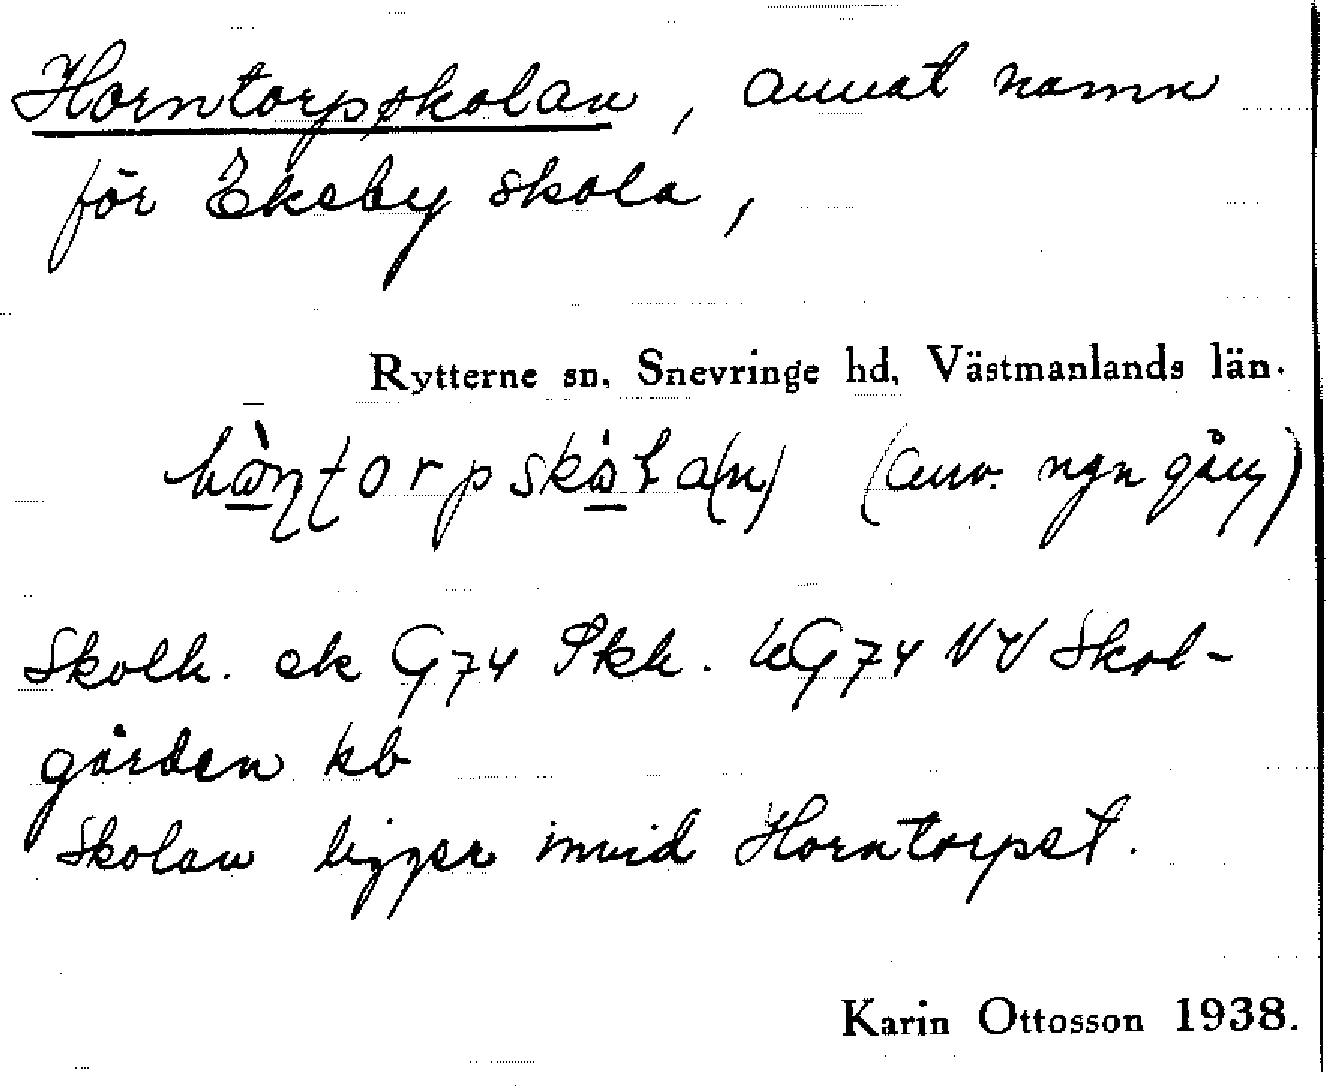 Horntorpskolan, annat namn
för Ekeby skola,
Rytterne sn. Snevringe hd. Västmanlands län.
(anv. ngn gång)
Skolh. ek G74 Skh. hG74 NV Skol-
gården kb
Skolan ligger invid Horntorpet.
Karin Ottosson 1938.